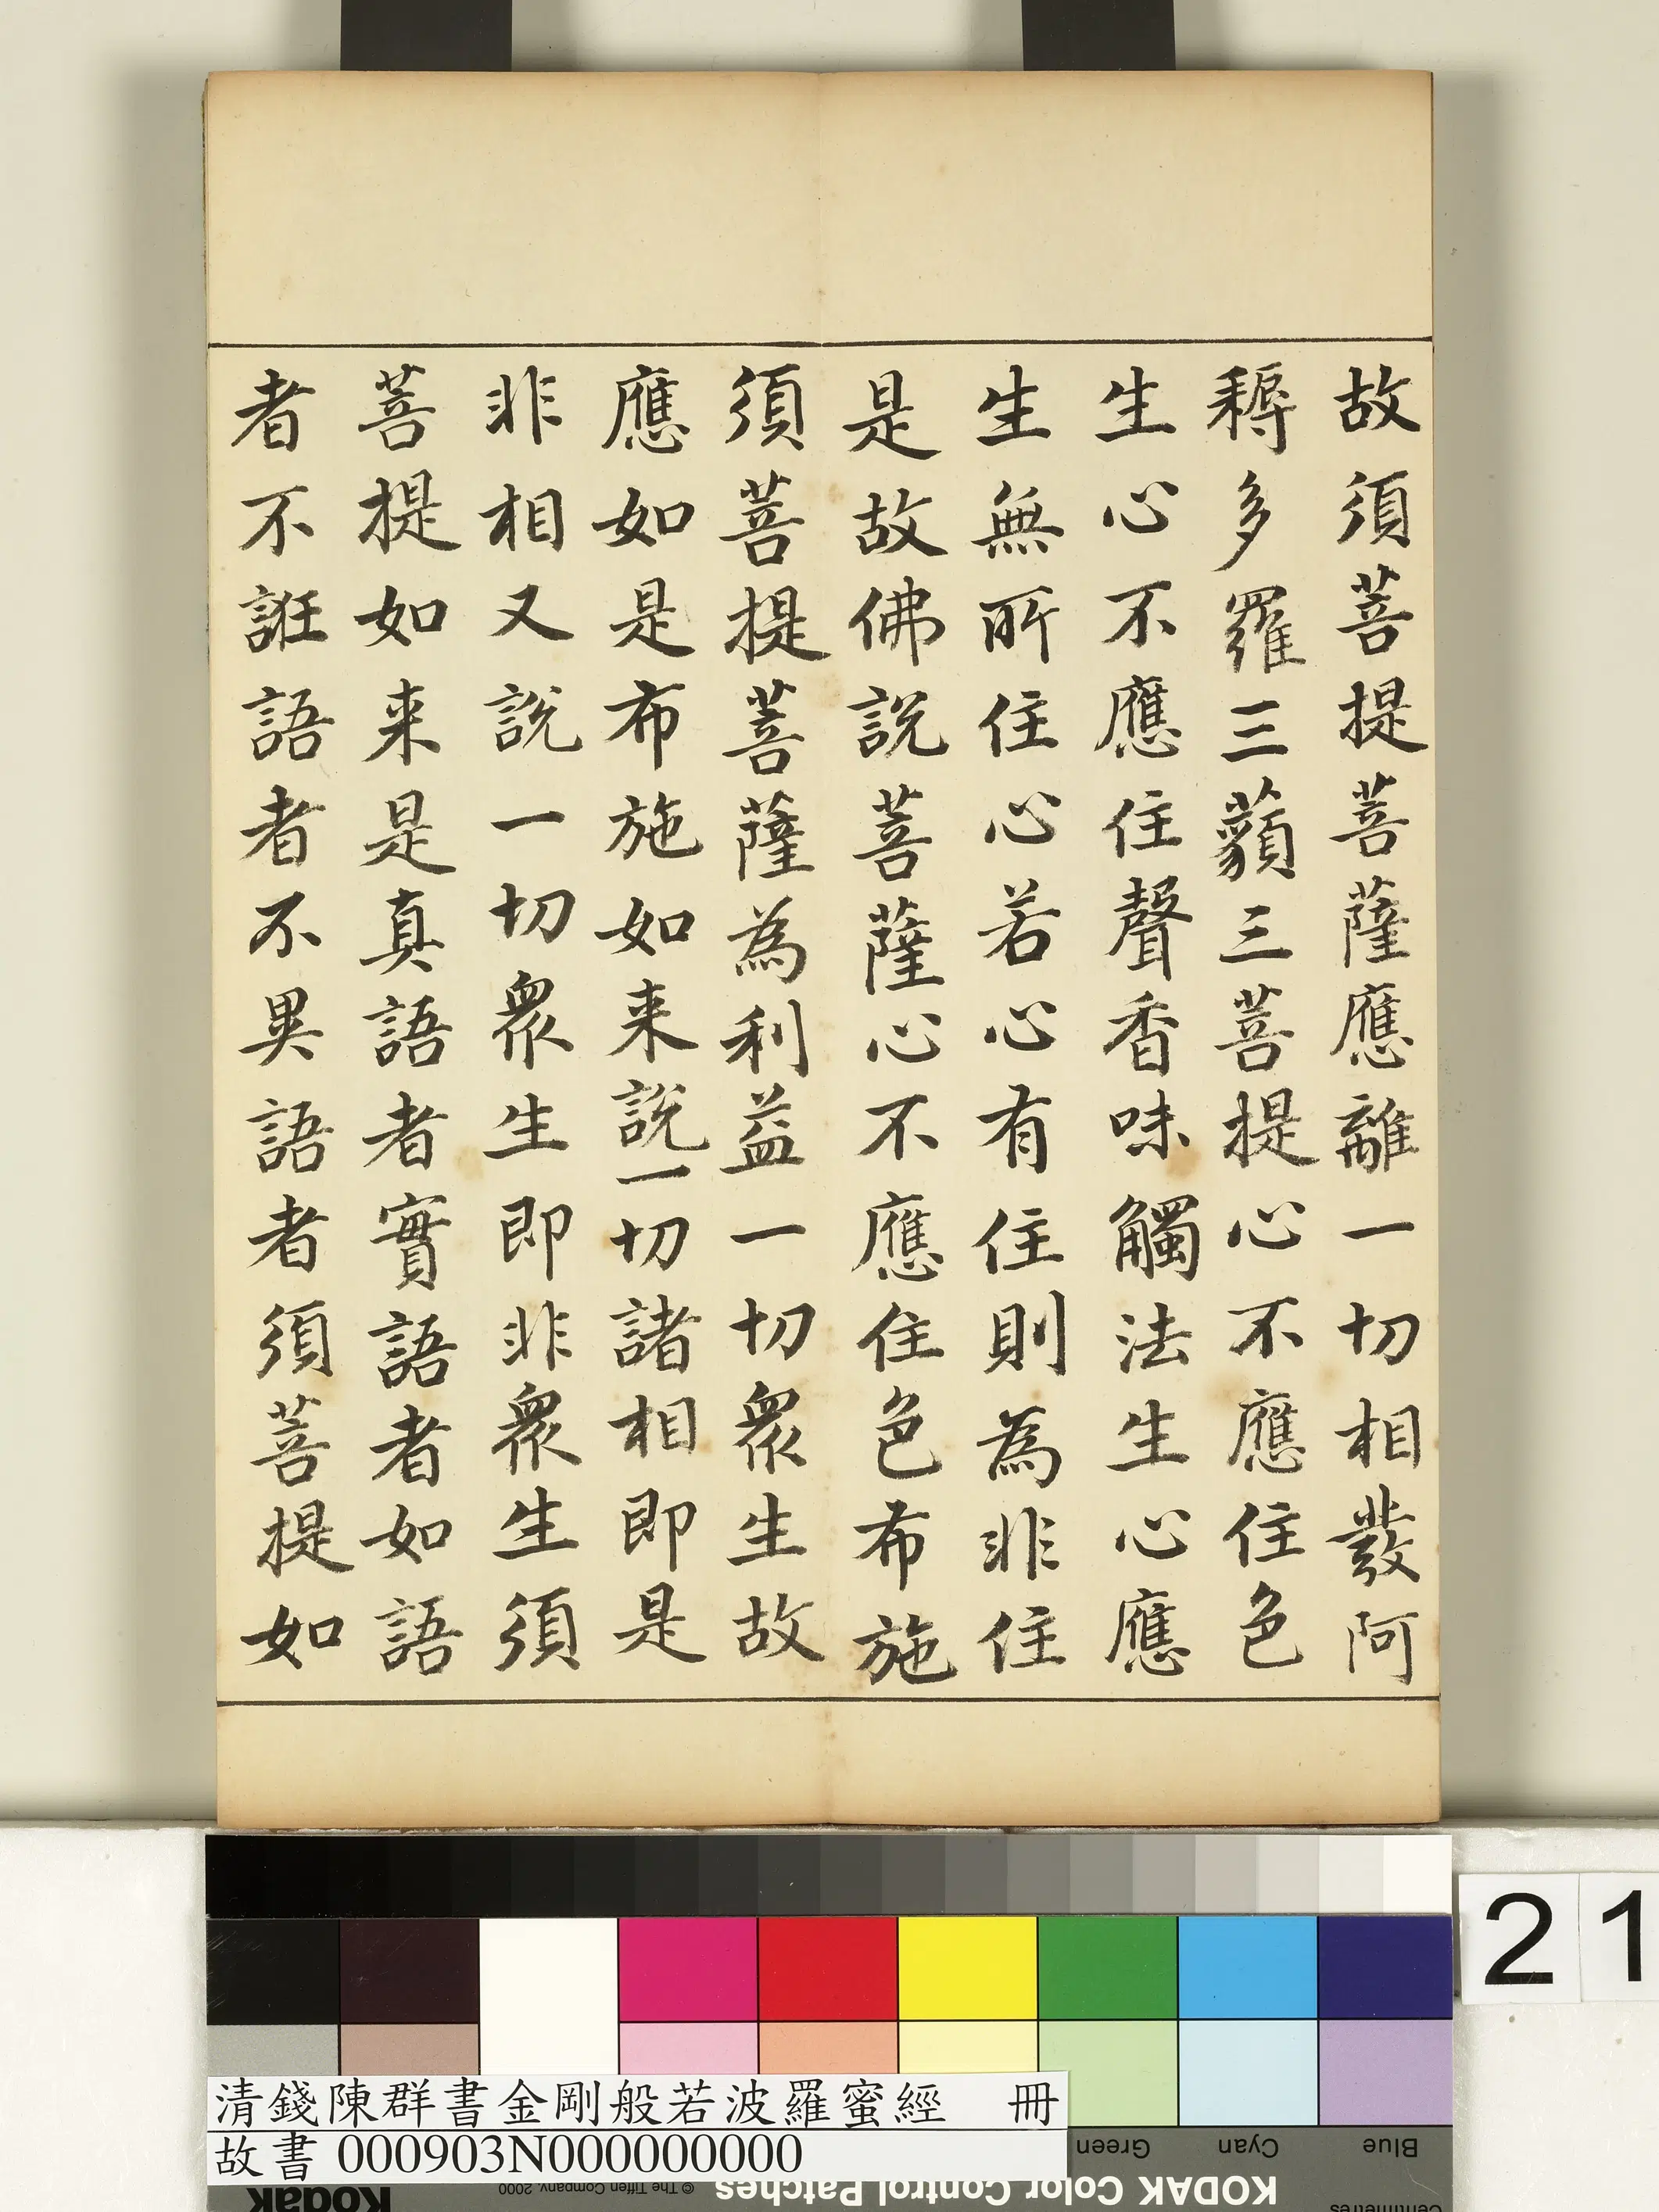 故須菩提菩薩應離一切相發阿
耨多羅三藐三菩提心不應住色
生心不應住聲香味觸法生心應
生無所住心若心有住則為非住
是故佛說菩薩心不應住色布施
須菩提菩薩為利益一切眾生故
應如是布施如来說一切諸相即是
非相又說一切眾生即非眾生須
菩提如来是真語者實語者如語
者不誑語者不異語者須菩提如
21
清錢陳群書金剛般若波羅蜜經 冊
故書 000903N000000000
Green Cyan Blue
© The Tiffen Company, 2000
Kodak
KODAK Color Control Patches
Centimetres